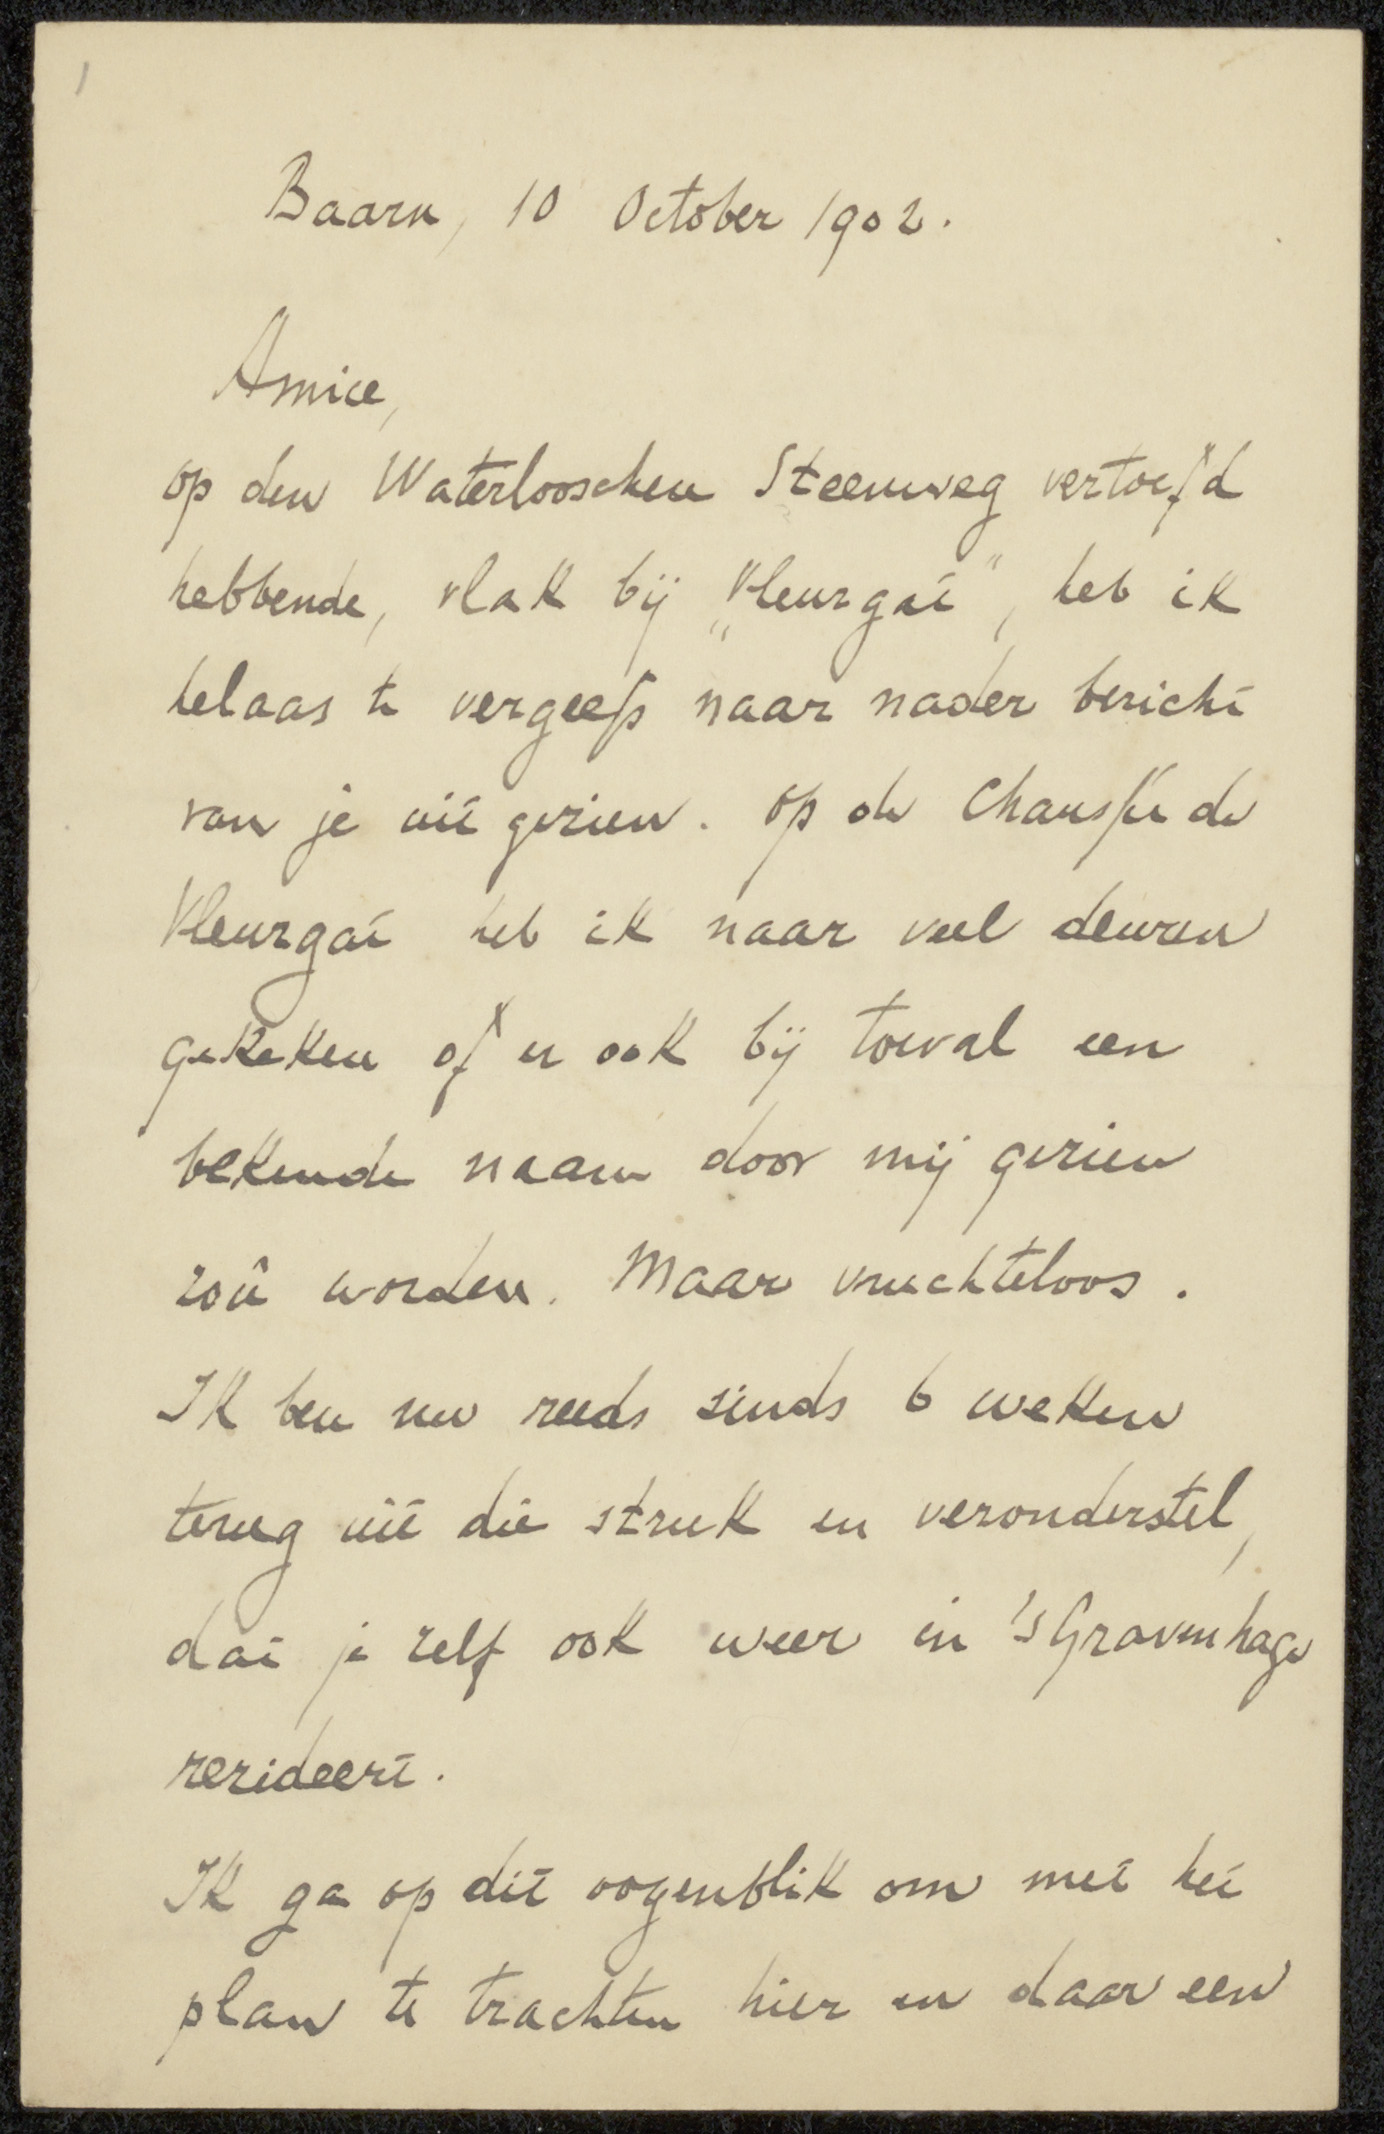 Baarn, 10 October 1902.
Amice,
op den Waterlooschen Steenweg vertoefd
hebbende, vlak bij „Vleurgat", heb ik
helaas te vergeefs naar nader bericht
van je uit gezien. Op de Chaussée de
Vleurgat heb ik naar veel deuren
gekeken of er ook bij toeval een
bekende naam door mij gezien
zoû worden. Maar vruchteloos.
Ik ben nu reeds sinds 6 weken
terug uit die streek en veronderstel,
dat je zelf ook weer in 's Gravenhage
resideert.
Ik ga op dit oogenblik om met het
plan te trachten hier en daar een